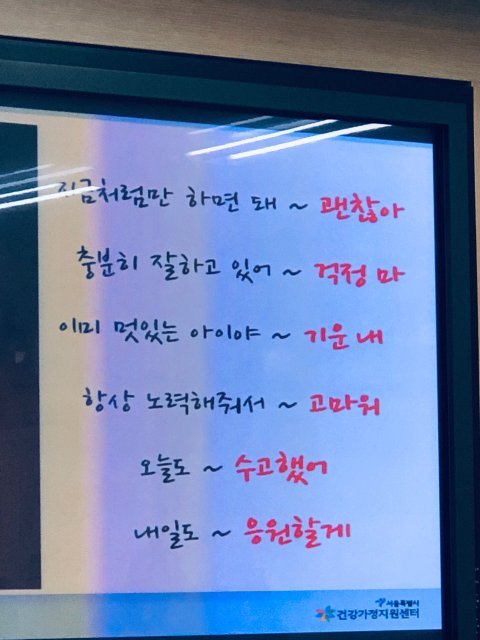 지금처럼만 하면 돼 ~ 괜찮아
충분히 잘하고 있어 ~ 걱정 마
이미 멋있는 아이야 ~ 기운 내
항상 노력해줘서 ~ 고마워
오늘도 ~ 수고했어
내일도 ~ 응원할게
서울특별시
건강가정지원센터